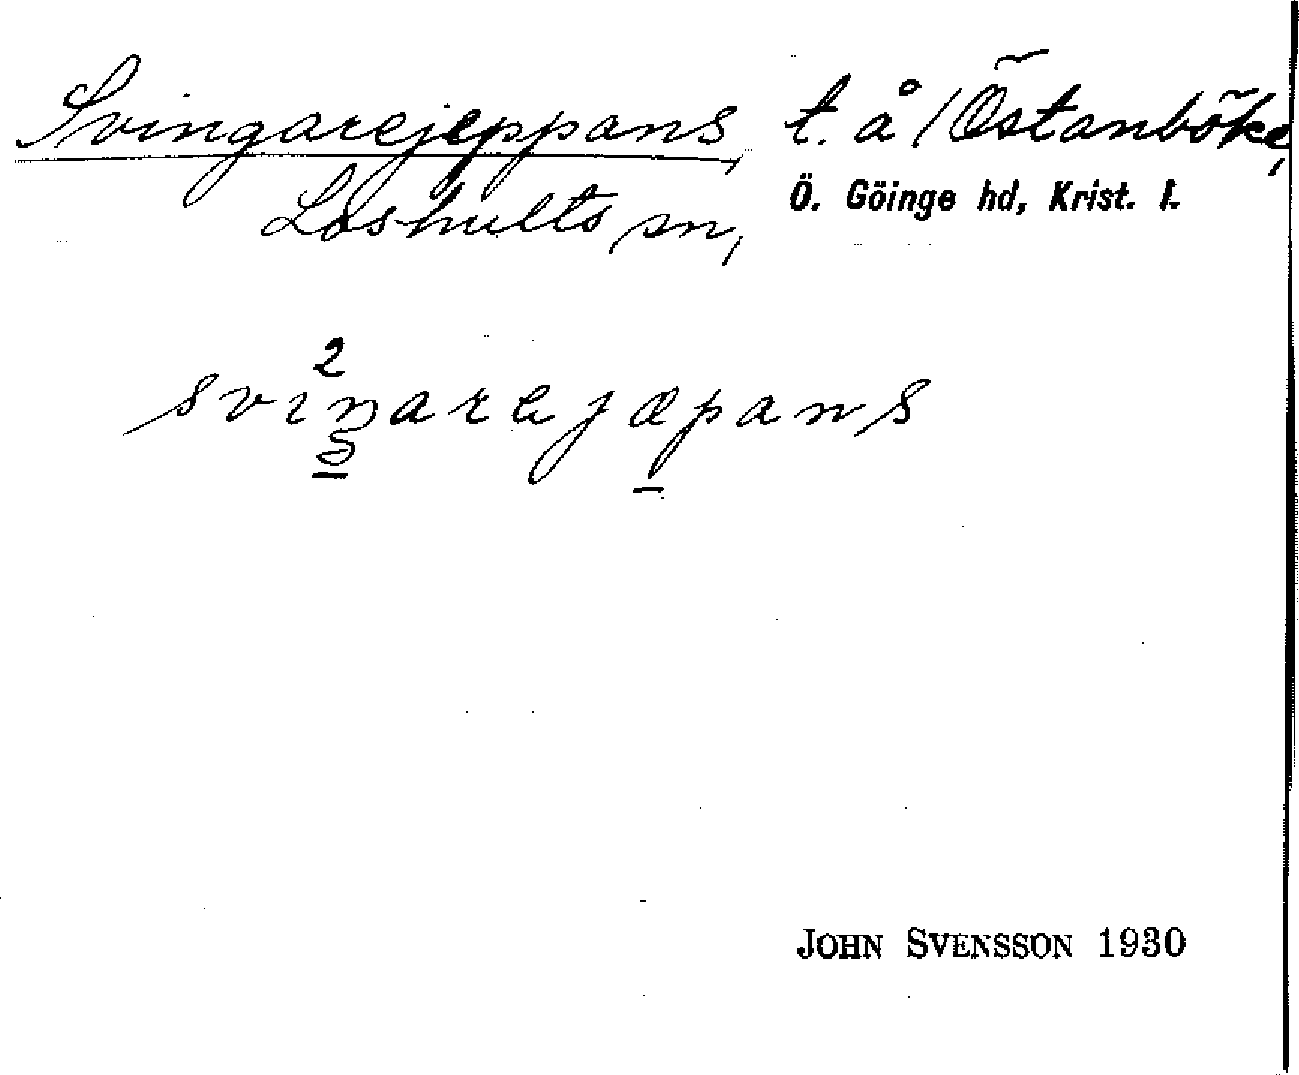 Svingarejeppans, t. å /Östanböke,
Loshults sn, Ö. Göinge hd, Krist. l.
svinarejæpans
JOHN SVENSSON 1930